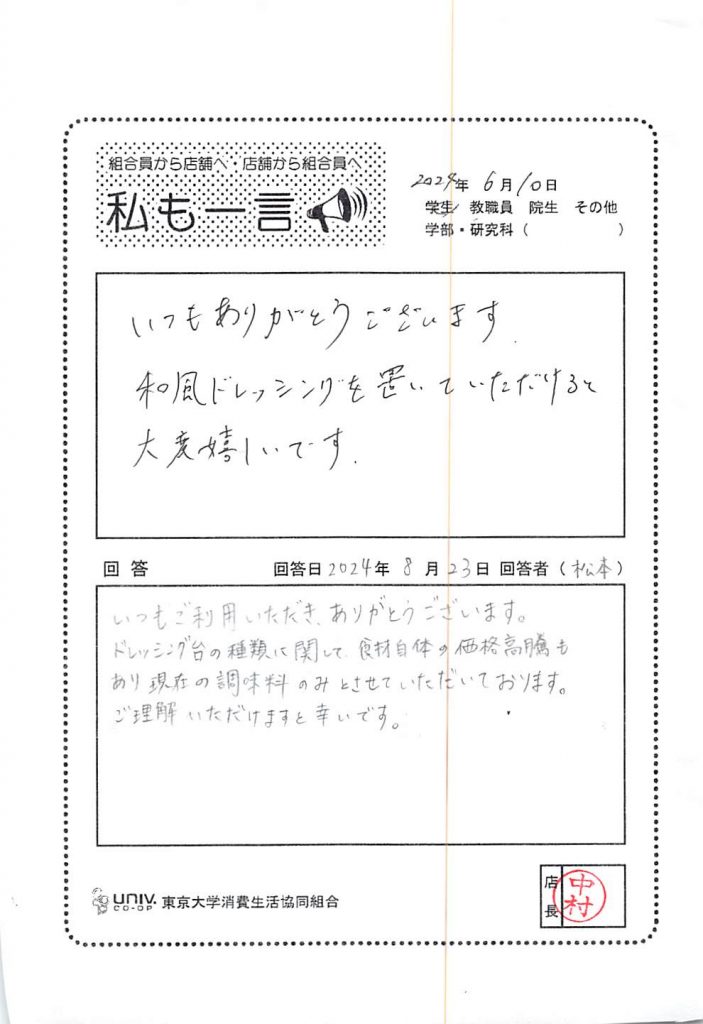 組合員から店舗へ・店舗から組合員へ
私も一言
2024年 6月10日
学生 教職員 院生 その他
学部・研究科( )
いつもありがとうございます.
和風ドレッシングを置いていただけると
大変嬉しいです.
回答 回答日2024年 8月23日 回答者(松本)
いつもご利用いただき、ありがとうございます。
ドレッシング台の種類に関して、食材自体の価格高騰も
あり現在の調味料のみとさせていただいております。
ご理解いただけますと幸いです。
univ. CO-OP 東京大学消費生活協同組合
店長 中村